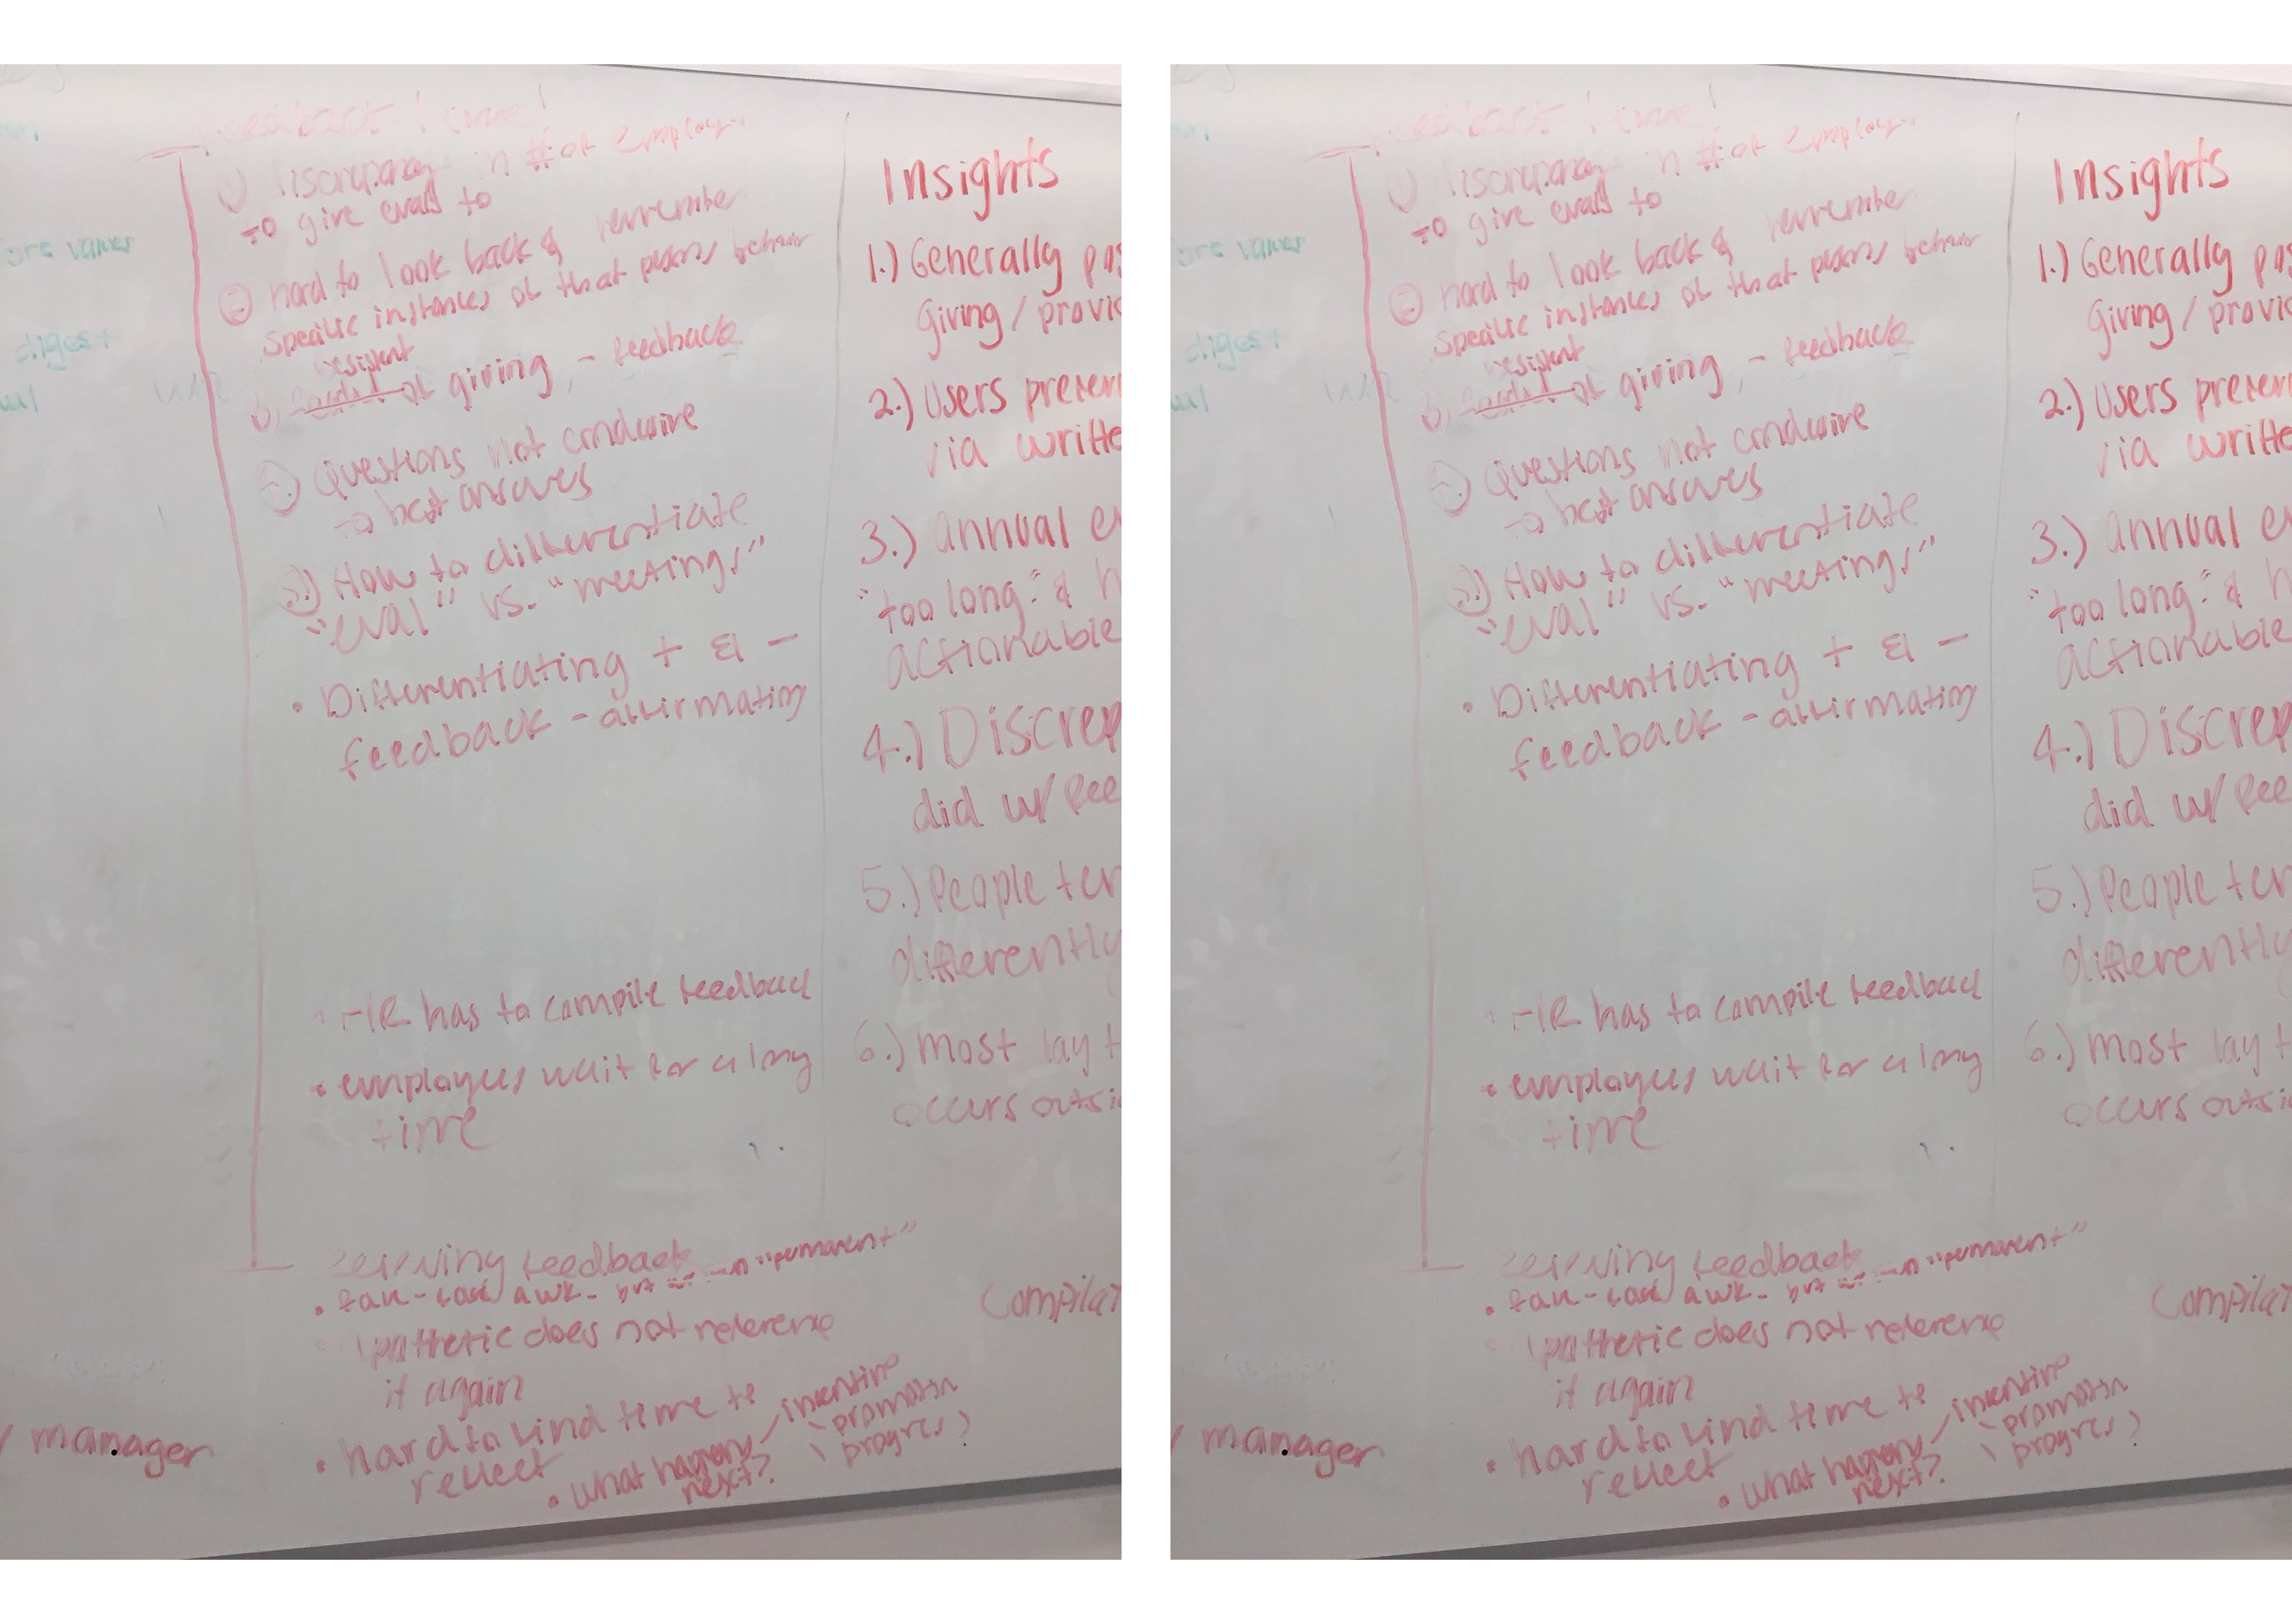 feedback time!
1) discrepancy in # of employ..
to give evals to
2) hard to look back & remember
specific instances of that persons behavior
resistant
3) of giving - feedback
4.) Questions not conducive
to best answers
5.) How to differentiate
"eval" vs. "meetings"
• Differentiating + & -
feedback - affirmating
HR has to compile feedback
• employees wait for a long
time
receiving feedback
"permanent"
• awk- but
pathetic does not reference
it again
• hard to find time to
reflect
• what happens
next?
incentive
promotion
progress)
Insights
1.) Generally pos
giving / provi
2.) Users prefer
via writte
3.) annual e
"too long" & h
actionable
4.) Discrep
did w/ fee
5.) People ten
differently
6.) most lay t
occurs outsi
compilat
core values
digest
ual
manager
feedback time!
1) discrepancy in # of employ..
to give evals to
2) hard to look back & remember
specific instances of that persons behavior
resistant
3) of giving - feedback
4.) Questions not conducive
to best answers
5.) How to differentiate
"eval" vs. "meetings"
• Differentiating + & -
feedback - affirmating
HR has to compile feedback
• employees wait for a long
time
receiving feedback
"permanent"
• awk- but
pathetic does not reference
it again
• hard to find time to
reflect
• what happens
next?
incentive
promotion
progress)
Insights
1.) Generally pos
giving / provi
2.) Users prefer
via writte
3.) annual e
"too long" & h
actionable
4.) Discrep
did w/ fee
5.) People ten
differently
6.) most lay t
occurs outsi
compilat
core values
digest
ual
manager